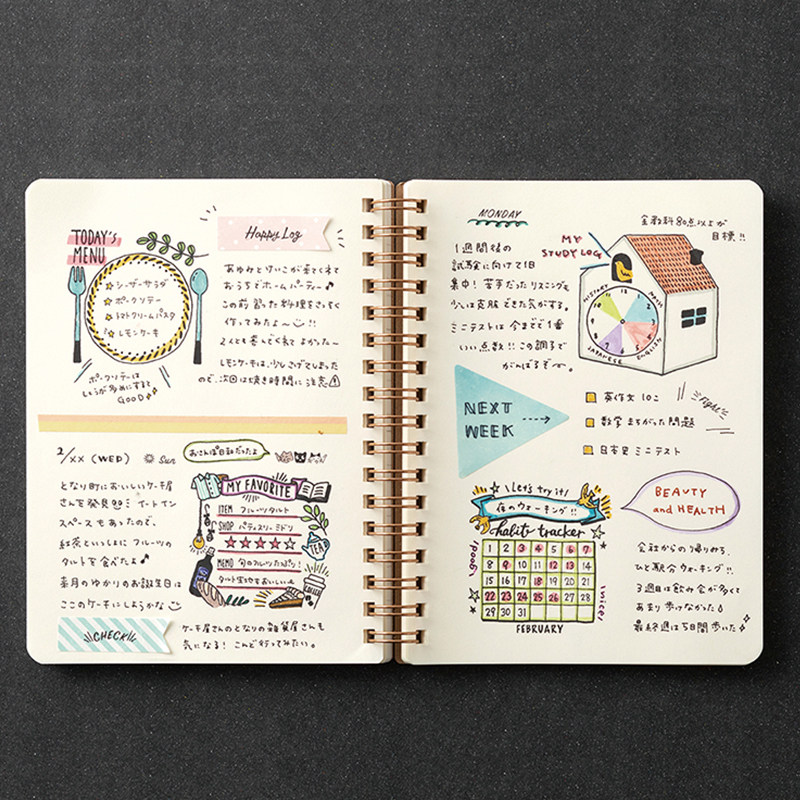 TODAY's
MENU
シーザーサラダ
ポークソテー
トマトクリームパスタ
レモンケーキ
ポークソテーは
しょうが多めにすると
GOOD
Happy Log
あゆみとけいこが来てくれて
おうちでホームパーティー♪
この前習った料理をさっそく
作ってみたよ〜!!
2人とも喜んでくれてよかった〜
レモンケーキは、少しこげてしまった
ので、次回は焼き時間に注意
2/XX (WED)
Sun
おさんぽ日和だったよ
となり町においしいケーキ屋
さんを発見!! イートイン
スペースもあったので、
紅茶といっしょにフルーツの
タルトを食べたよ♪
来月のゆかりのお誕生日は
ここのケーキにしようかな
MY FAVORITE
ITEM フルーツタルト
SHOP パティスリーミドリ
MEMO 旬のフルーツたっぷり!
タルト生地もおいしい
TEA
CHECK!!
ケーキ屋さんのとなりの雑貨屋さんも
気になる! こんど行ってみたい。
MONDAY
1週間後の
試験に向けて1日
集中! 苦手だったリスニングも
少しは克服できた気がする。
ミニテストは今までで1番
いい点数!! この調子で
がんばるぞー。
MY
STUDY LOG
全教科80点以上が
目標!!
HISTORY
MATH
JAPANESE
ENGLISH
NEXT
WEEK
英作文 10こ
数学 まちがった問題
日本史 ミニテスト
Fight
Let's try it!
夜のウォーキング!!
habit tracker
good!
1 2 3 4 5 6 7
8 9 10 11 12 13 14
15 16 17 18 19 20 21
22 23 24 25 26 27 28
29 30 31
nice!
FEBRUARY
BEAUTY
and HEALTH
会社からの帰りみち、
ひと駅分ウォーキング!!
3週目は飲み会が多くて
あまり歩けなかった
最終週は5日間歩いた